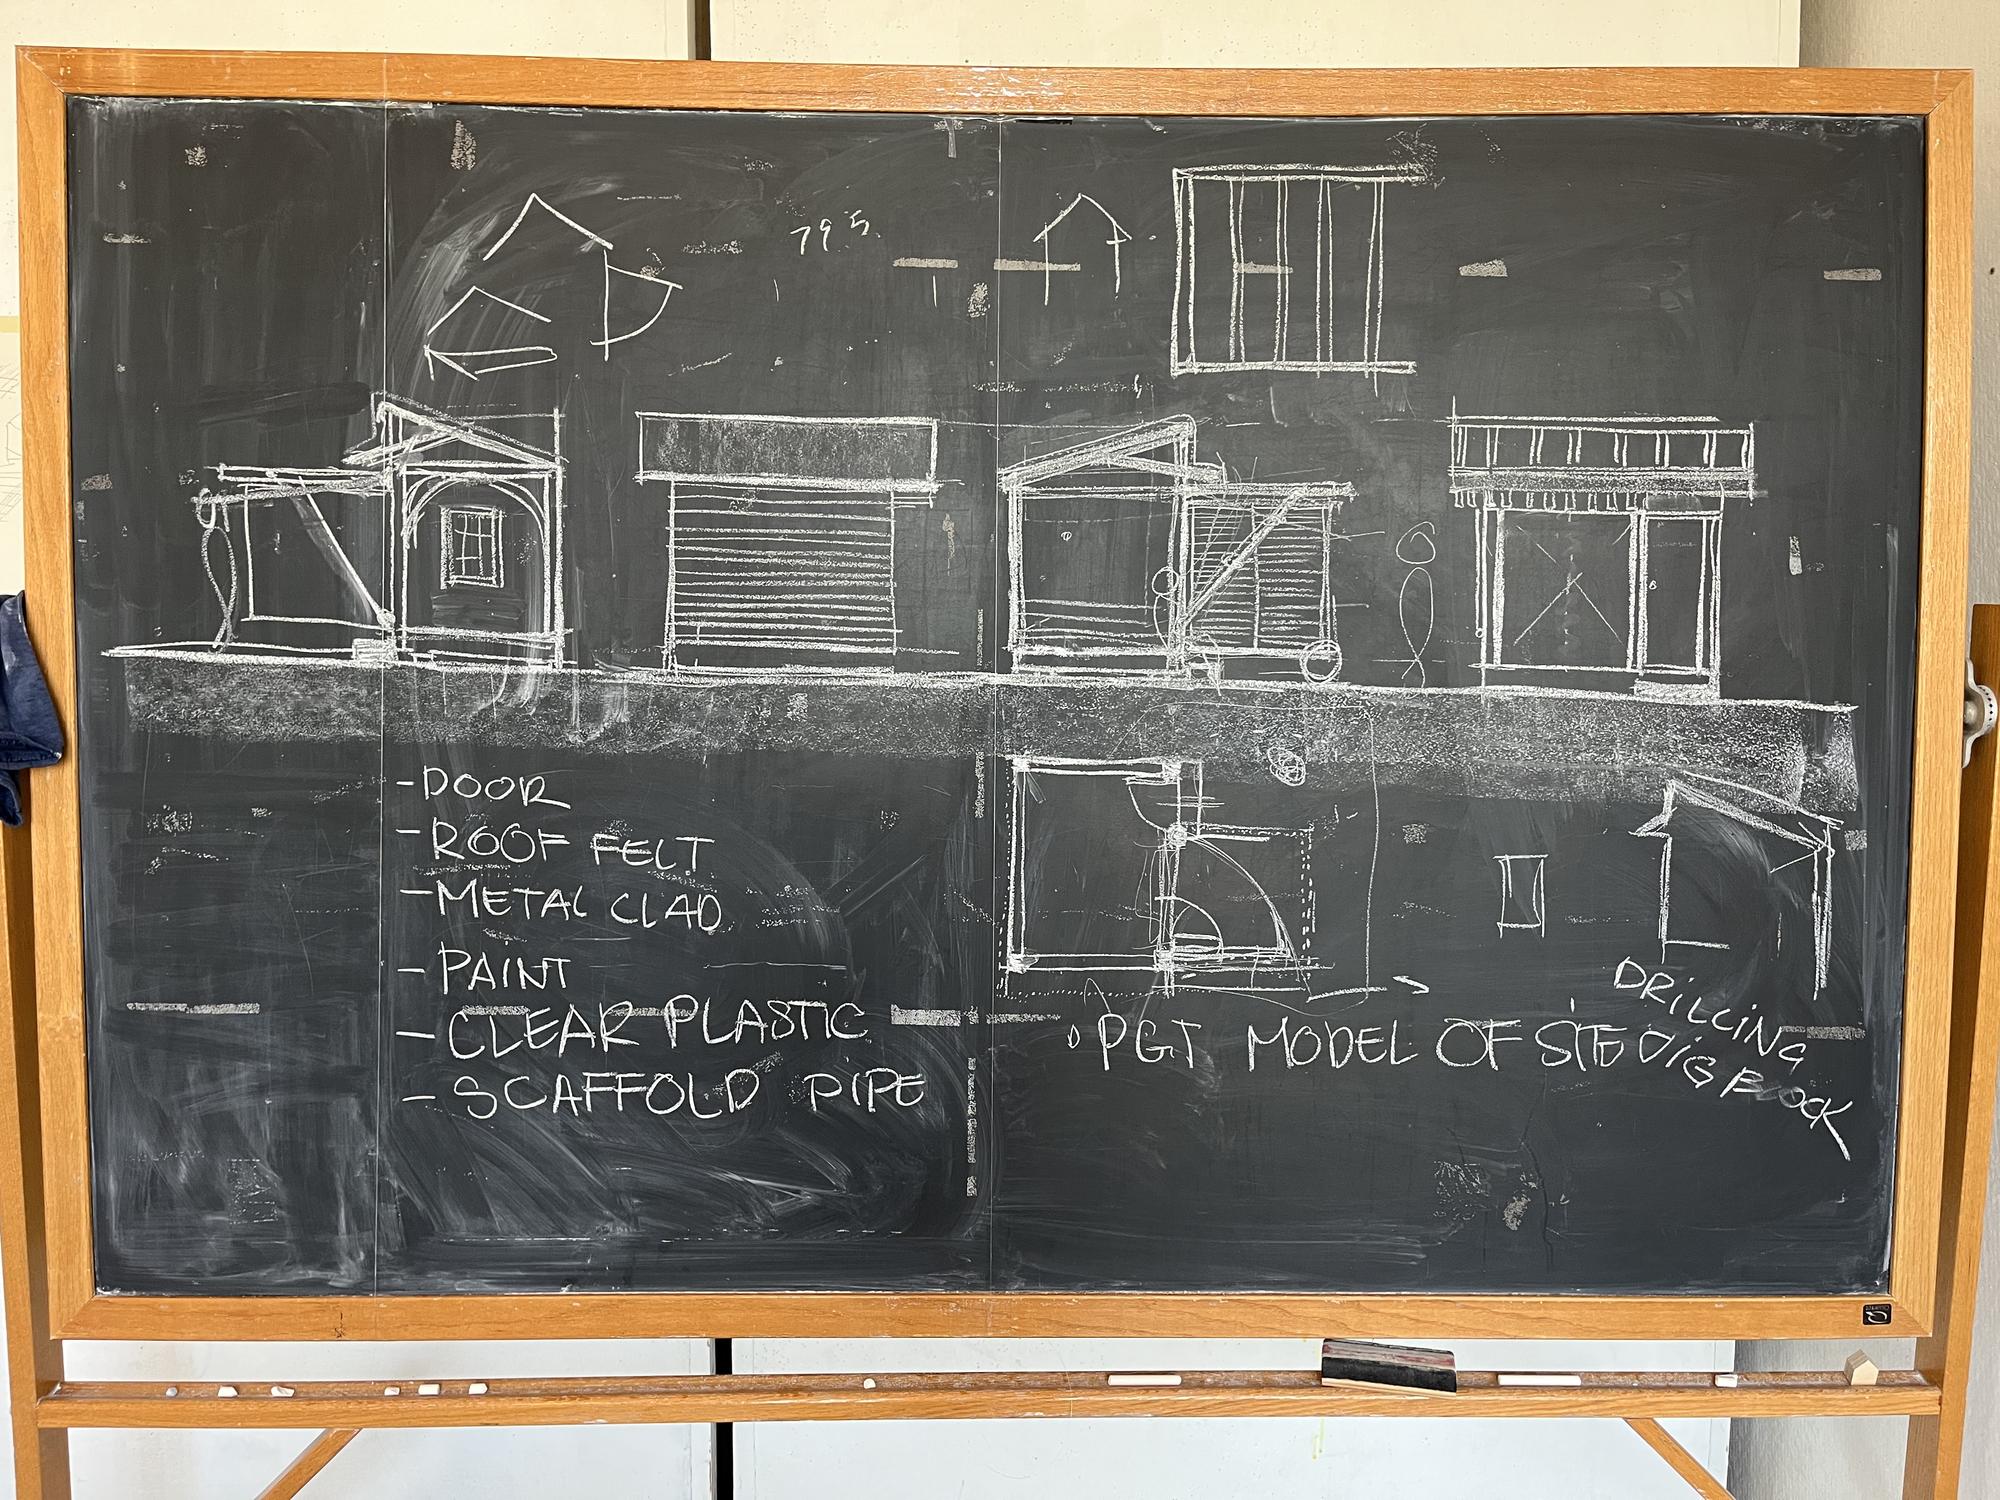 79.5.
- DOOR
- ROOF FELT
- METAL CLAD
- PAINT
- CLEAR PLASTIC
- SCAFFOLD PIPE
PGT MODEL OF SITE
DRILLING
DIG